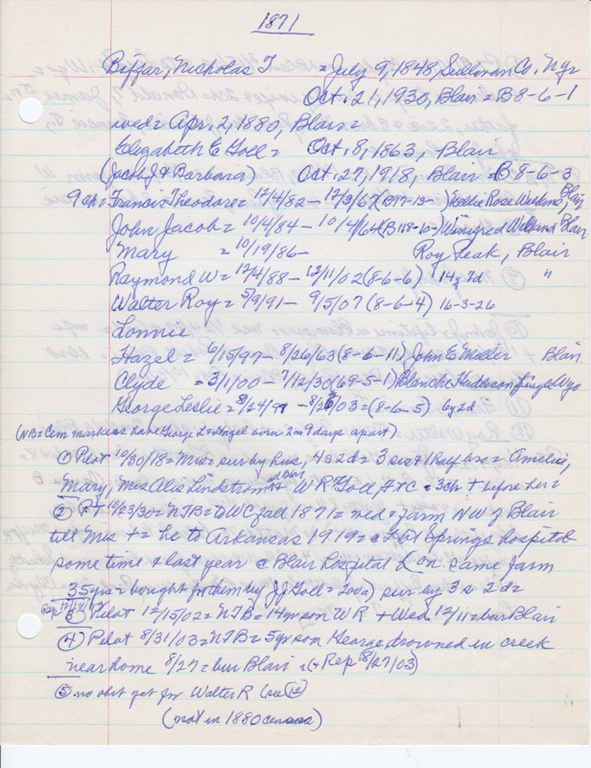 1871
Beffar, Nicholas T = July 9, 1848, Sullivan Co, Ny
Oct. 21, 1930, Blair = B 8-6-1
wed = Apr. 2, 1880, Blair =
Elizabeth E Goll = Oct. 8, 1863, Blair
(Jacob J & Barbara) Oct. 27, 1918, Blair = B 8-6-3
9 ch = Francis Theodore = 12/4/82 - Rose Blair
John Jacob = 10/4/84 - 10/4/64 Winifred Blair
Mary = 10/19/86 - Roy Peak, Blair
Raymond W = 12/4/88 - 12/11/02 (8-6-6) 14y 7d "
Walter Roy = 5/9/91 - 9/5/07 (8-6-4) 16-3-26
Lonnie
Hazel = 6/15/97 - 8/26/63 (8-6-11) John E Blair
Clyde = 3/1/00 - 7/12/30 (69-5-1) Blanche Henderson Lingle Wyo
George Leslie = 8/26/03 = (8-6-5) 6y 2d
(NB = Cem markers have George L & Hazel born 2m 9 days apart)
① Pilot 10/30/18 = Mrs = sur by hus, 4s 2d = 3 sis + 1 half bro = Amelia,
Mary, Mrs Alis Lindstrom all Blair + W R Goll, = 3ch + before her =
② = NTB = DWC fall 1871 = wed = farm NW of Blair
till Mrs + = he to Arkansas 1919 = Springs hospital
some time & last year @ Blair hospital & on same farm
35 yrs = bought for them by JJ Goll = 200a) sur by 3s 2d =
③ Pilot 12/15/02 = NTB = 14y son W R + Wed 12/11 = bur Blair
④ Pilot 8/31/03 = NTB = 5y son George drowned in creek
near home 8/27 = bur Blair = (+ Rep 8/27/03)
⑤ no obit yet for Walter R (see
(not in 1880 census)